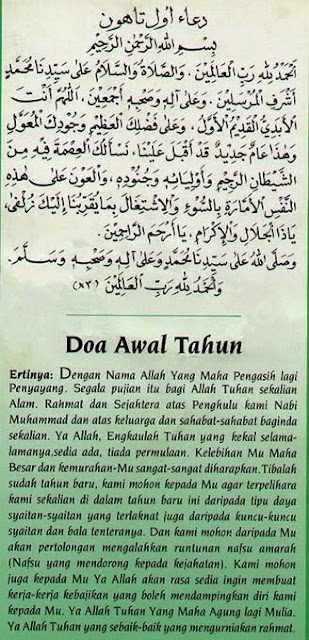 دعاء اول تاهون
بِسْمِ اللهِ الرَّحْمٰنِ الرَّحِيْمِ
اَلْحَمْدُ لِلّٰهِ رَبِّ الْعَالَمِيْنَ. وَالصَّلَاةُ وَالسَّلَامُ عَلَى سَيِّدِنَا مُحَمَّدٍ
أَشْرَفِ الْمُرْسَلِيْنَ. وَعَلَى آلِهِ وَصَحْبِهِ أَجْمَعِيْنَ. اَللّٰهُمَّ أَنْتَ
الْأَبَدِيُّ الْقَدِيْمُ الْأَوَّلُ. وَعَلَى فَضْلِكَ الْعَظِيْمِ وَجُوْدِكَ الْمُعَوَّلُ
وَهٰذَا عَامٌ جَدِيْدٌ قَدْ أَقْبَلَ عَلَيْنَا. نَسْأَلُكَ الْعِصْمَةَ فِيْهِ مِنَ
الشَّيْطَانِ الرَّجِيْمِ وَأَوْلِيَائِهِ وَجُنُوْدِهِ. وَالْعَوْنَ عَلَى هٰذِهِ
النَّفْسِ الْأَمَّارَةِ بِالسُّوْءِ وَالْاِشْتِغَالَ بِمَا يُقَرِّبُنَا إِلَيْكَ زُلْفَى.
يَاذَا الْجَلَالِ وَالْإِكْرَامِ. يَا أَرْحَمَ الرَّاحِمِيْنَ.
وَصَلَّى اللهُ عَلَى سَيِّدِنَا مُحَمَّدٍ وَعَلَى آلِهِ وَصَحْبِهِ وَسَلَّمَ.
وَالْحَمْدُ لِلّٰهِ رَبِّ الْعَالَمِيْنَ (٣×)
Doa Awal Tahun
Ertinya: Dengan Nama Allah Yang Maha Pengasih lagi
Penyayang. Segala pujian itu bagi Allah Tuhan sekalian
Alam. Rahmat dan Sejahtera atas Penghulu kami Nabi
Muhammad dan atas keluarga dan sahabat-sahabat baginda
sekalian. Ya Allah, Engkaulah Tuhan yang kekal selama-
lamanya,sedia ada, tiada permulaan. Kelebihan Mu Maha
Besar dan kemurahan-Mu sangat-sangat diharapkan.Tibalah
sudah tahun baru, kami mohon kepada Mu agar terpelihara
kami sekalian di dalam tahun baru ini daripada tipu daya
syaitan-syaitan yang terlaknat juga daripada kuncu-kuncu
syaitan dan bala tenteranya. Dan kami mohon daripada Mu
akan pertolongan mengalahkan runtunan nafsu amarah
(Nafsu yang mendorong kepada kejahatan). Kami mohon
juga kepada Mu Ya Allah akan rasa sedia ingin membuat
kerja-kerja kebajikan yang boleh mendampingkan diri kami
kepada Mu. Ya Allah Tuhan Yang Maha Agung lagi Mulia.
Ya Allah Tuhan yang sebaik-baik yang mengurniakan rahmat.